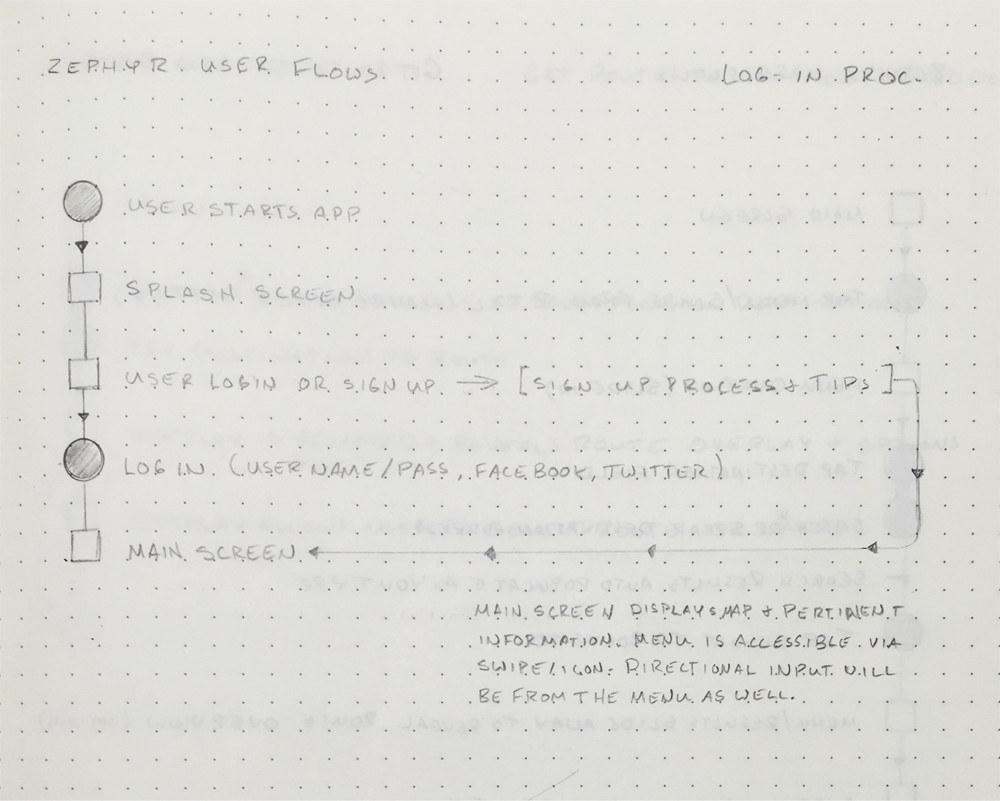 ZEPHYR USER FLOWS.
LOG-IN PROC.
USER STARTS APP
SPLASH SCREEN
USER LOGIN OR SIGN UP → [SIGN UP PROCESS + TIPS]
LOG IN. (USER NAME/PASS, FACEBOOK, TWITTER)
MAIN SCREEN
MAIN SCREEN DISPLAYS MAP + PERTINENT
INFORMATION. MENU IS ACCESSIBLE VIA
SWIPE/ICON. DIRECTIONAL INPUT WILL
BE FROM THE MENU AS WELL.